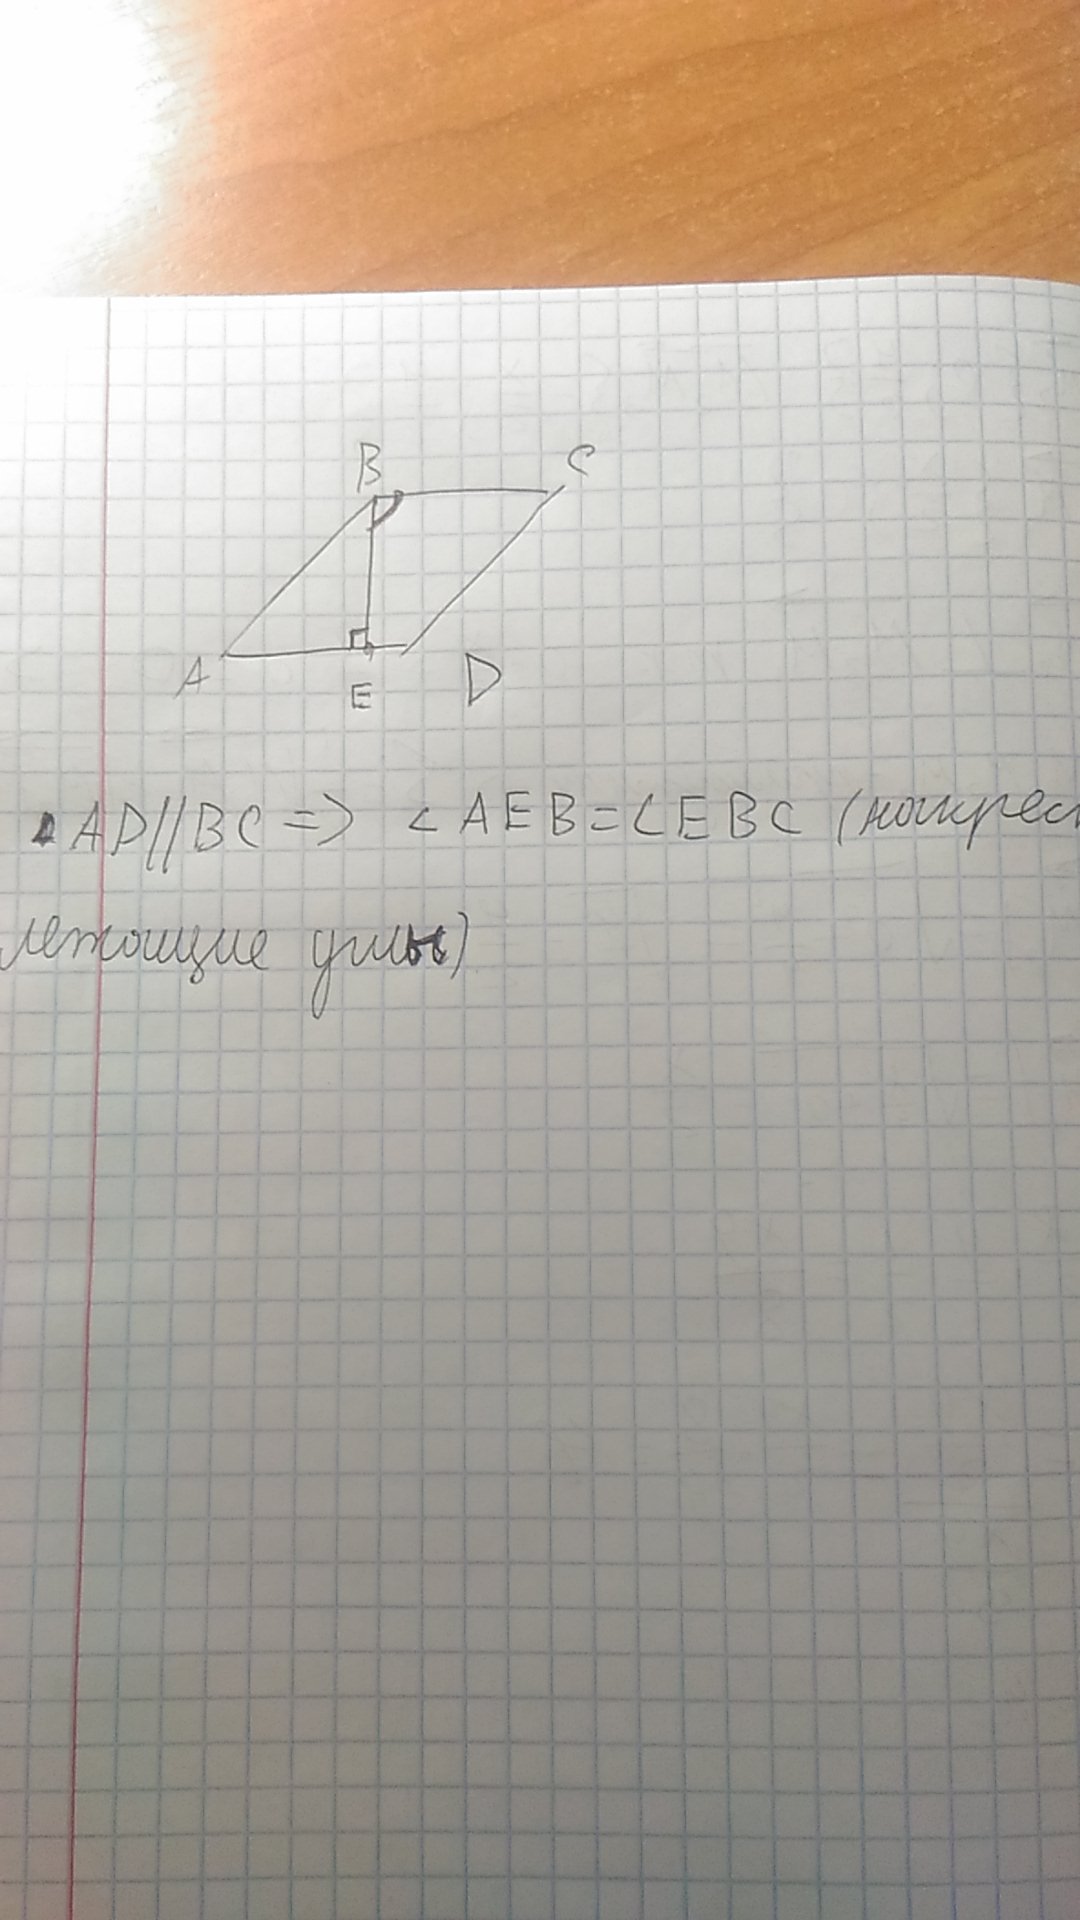 B C
A E D
AD//BC => <AEB=<EBC (накрест
лежащие углы)